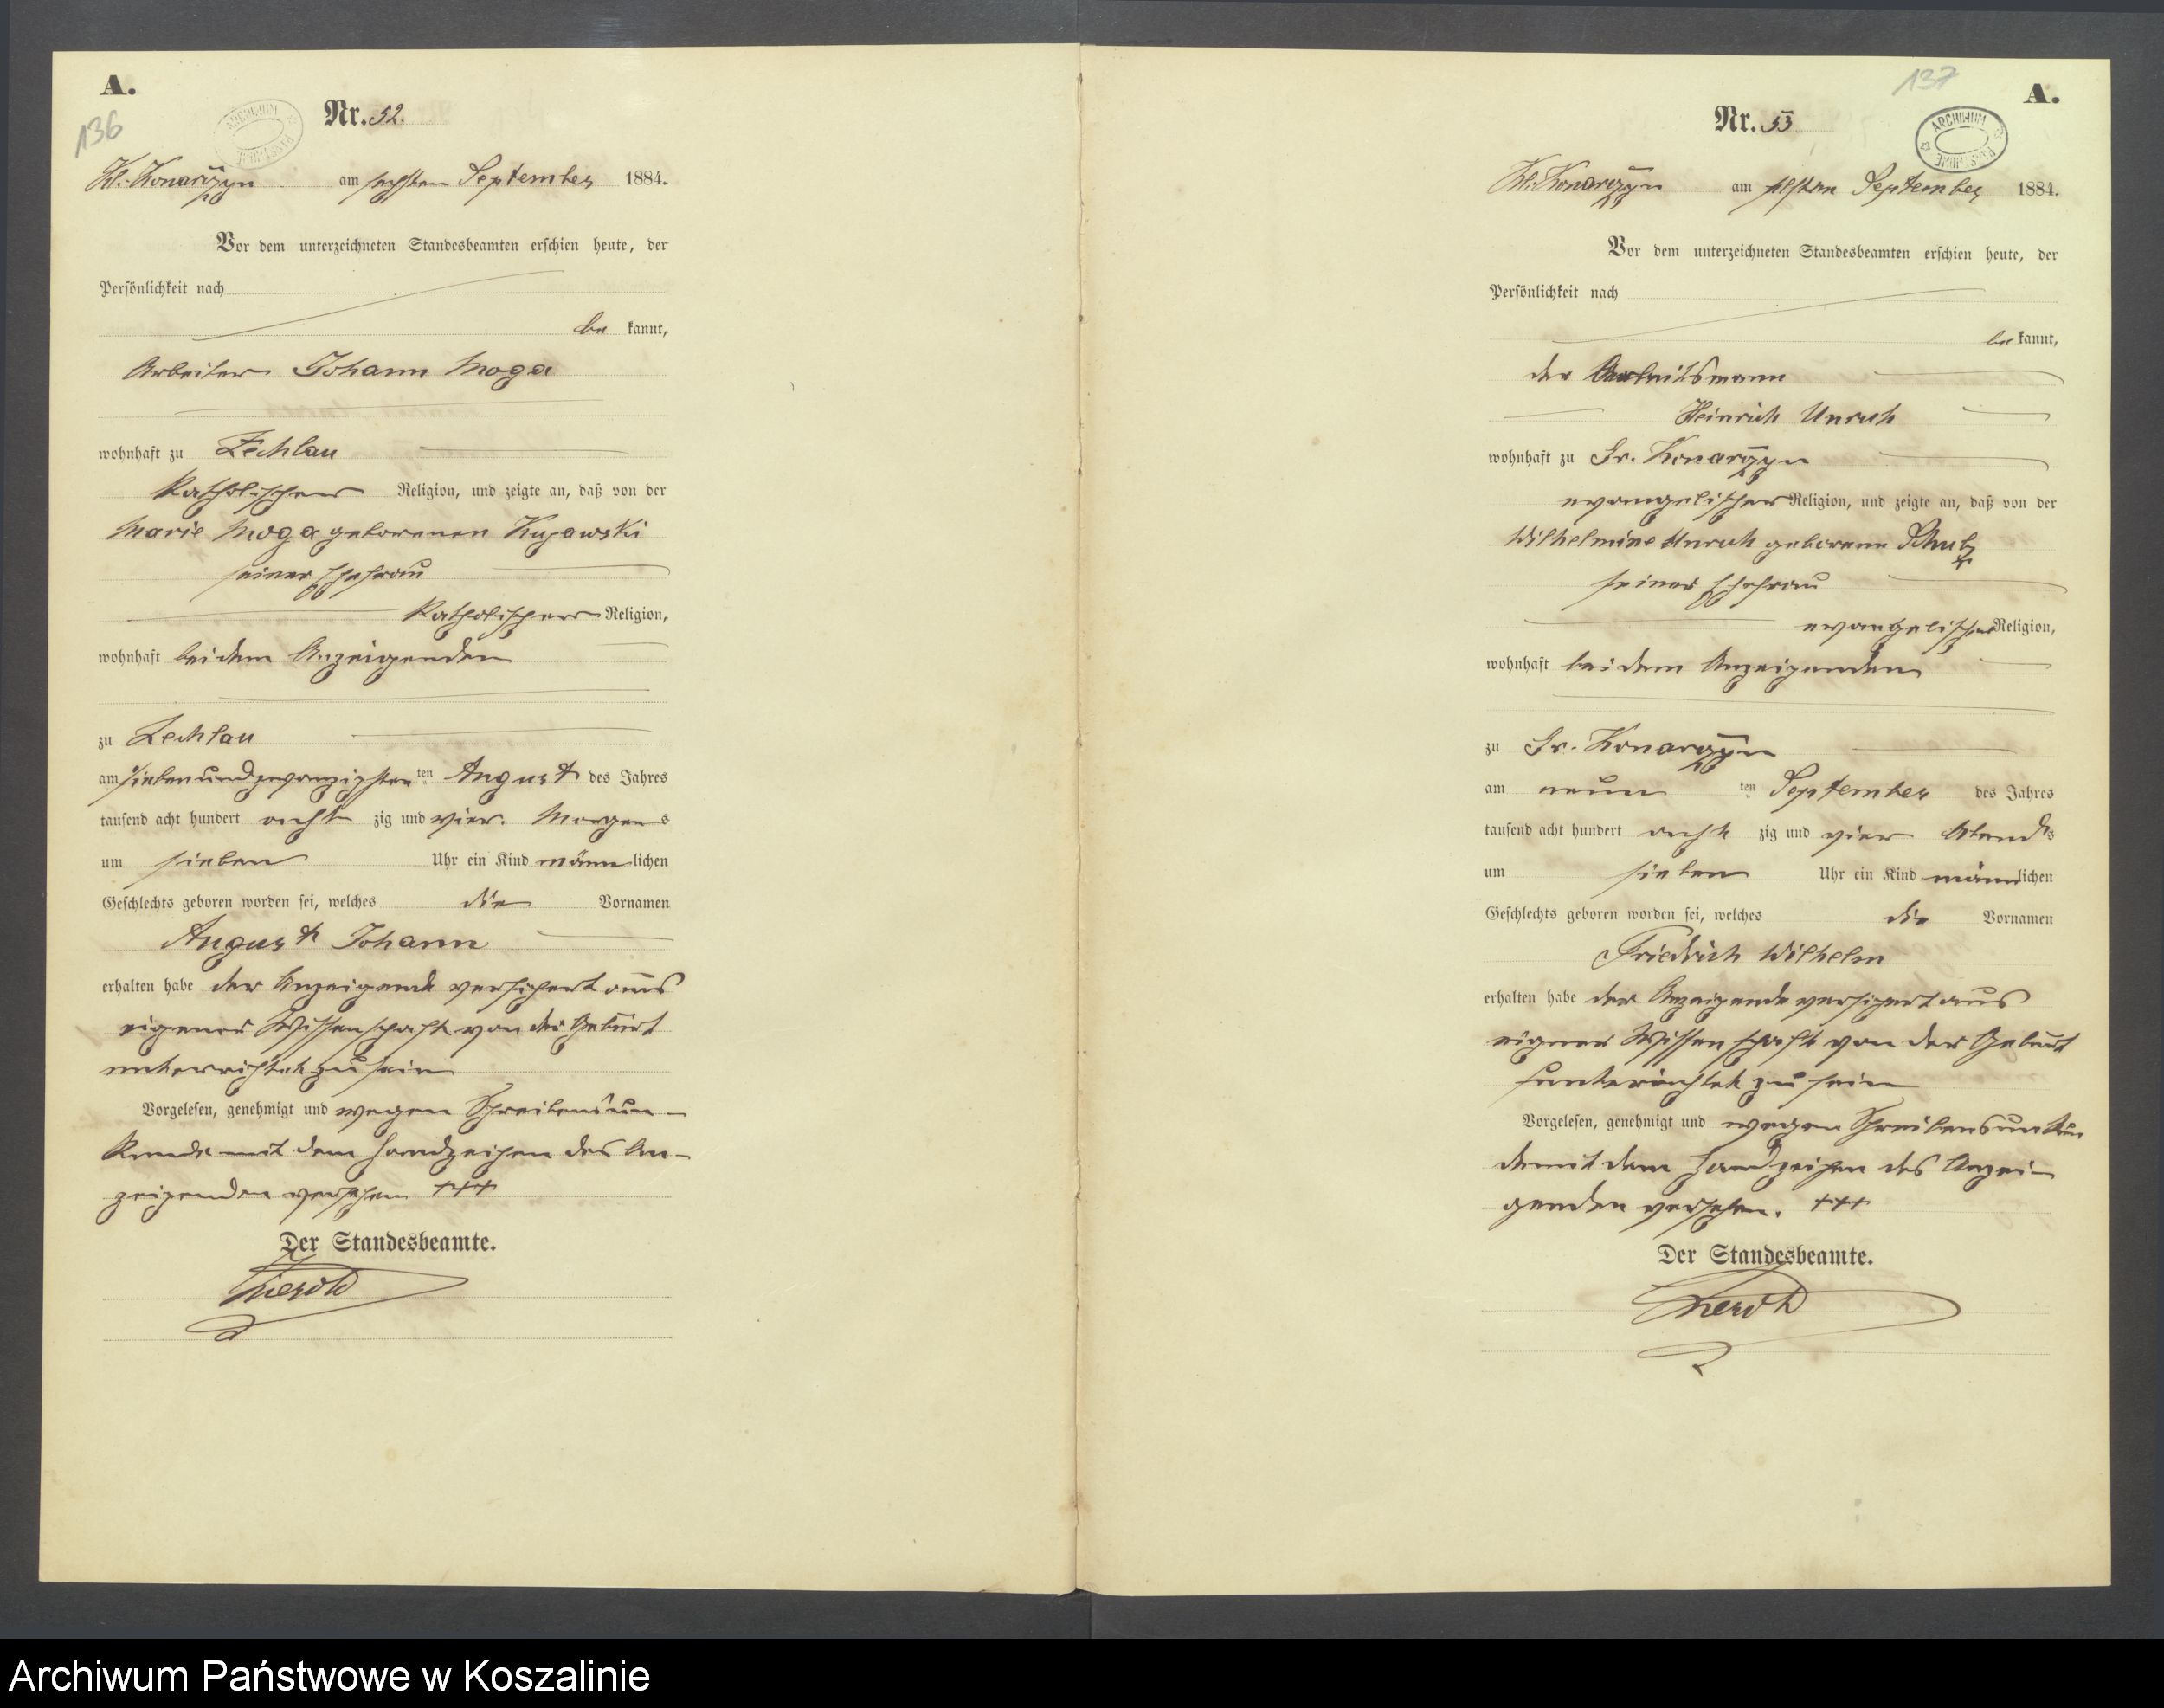 A.
136
ARCHIWUM PAŃSTWOWE
Nr. 52.
Kl. Konarczyn am sechsten September 1884.
Vor dem unterzeichneten Standesbeamten erschien heute, der
Persönlichkeit nach
be kannt,
Arbeiter Johann Moga
wohnhaft zu Zechlau
katholischer Religion, und zeigte an, daß von der
Marie Moga geborenen Kujawski
seiner Ehefrau
katholischer Religion,
wohnhaft bei dem Anzeigenden
zu Zechlau
am siebenundzwanzigsten ten August des Jahres
tausend acht hundert acht zig und vier. Morgen s
um sieben Uhr ein Kind männ lichen
Geschlechts geboren worden sei, welches die Vornamen
August Johann
erhalten habe der Anzeigende versichert aus
eigener Wissenschaft von der Geburt
unterrichtet zu sein
Vorgelesen, genehmigt und wegen Schreibensun-
kunde mit dem Handzeichen des An-
zeigenden versehen +++
Der Standesbeamte.
137
A.
ARCHIWUM PAŃSTWOWE
Nr. 53
Kl. Konarczyn am elften September 1884.
Vor dem unterzeichneten Standesbeamten erschien heute, der
Persönlichkeit nach
be kannt,
der Arbeitsmann
Heinrich Unruh
wohnhaft zu Gr. Konarczyn
evangelischer Religion, und zeigte an, daß von der
Wilhelmine Unruh geborene Schulz
seiner Ehefrau
evangelischer Religion,
wohnhaft bei dem Anzeigenden
zu Gr. Konarczyn
am neun ten September des Jahres
tausend acht hundert acht zig und vier Abend s
um sieben Uhr ein Kind männ lichen
Geschlechts geboren worden sei, welches die Vornamen
Friedrich Wilhelm
erhalten habe der Anzeigende versichert aus
eigner Wissenschaft von der Geburt
unterichtet zu sein
Vorgelesen, genehmigt und wegen Schreibensunkun
de mit dem Handzeichen des Anzei-
genden versehen. +++
Der Standesbeamte.
Archiwum Państwowe w Koszalinie